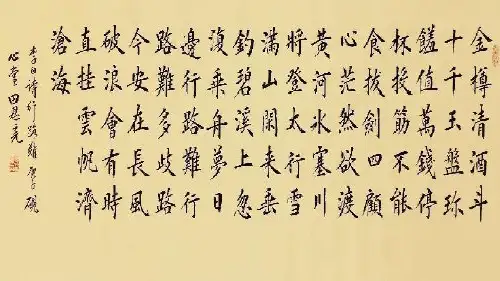 金樽清酒斗
十千玉盤珎
饈值萬錢停
杯投筯不能
食拔劍四顧
心茫然欲渡
黄河冰塞川
將登太行雪
滿山閑来垂
釣碧溪上忽
復乗舟夢日
邊行路難行
路難多歧路
今安在長風
破浪會有時
直挂雲帆濟
滄海
李白诗行路難